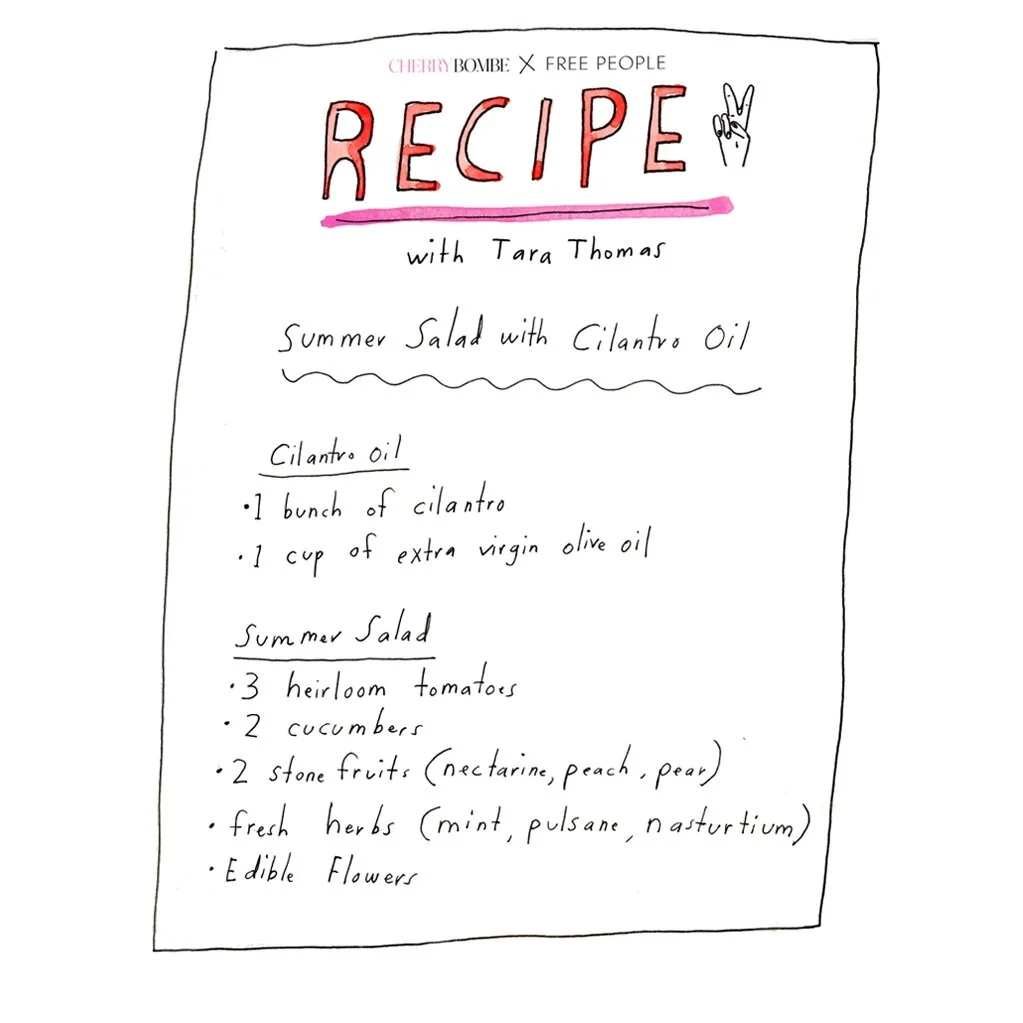 CHERRYBOMBE X FREE PEOPLE
RECIPE
with Tara Thomas
Summer Salad with Cilantro Oil
Cilantro oil
•1 bunch of cilantro
•1 cup of extra virgin olive oil
Summer Salad
•3 heirloom tomatoes
•2 cucumbers
•2 stone fruits (nectarine, peach, pear)
•fresh herbs (mint, pulsane, nasturtium)
•Edible Flowers